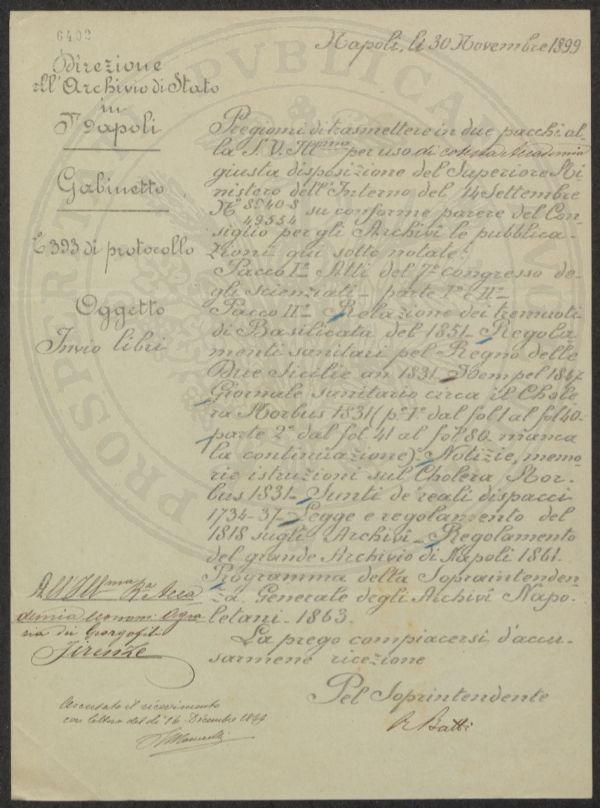 6402
Napoli, li 30 Novembre 1899
Direzione
dell'Archivio di Stato
in
Napoli
Gabinetto
N 393 di protocollo
Oggetto
Invio libri
Pregiomi di trasmettere in due pacchi al-
la S. V. Ill.ma per uso di cotesta Accademia
giusta disposizione del Superiore Mi-
nistero dell'Interno del 14 Settembre
N° 8540-8
49554 su conforme parere del Con-
siglio per gli Archivi le pubblica-
zioni qui sotto notate:
Pacco I° Atti del 7° congresso de-
gli scienziati - parte I° e II°
Pacco II° - Relazione dei tremuoti
di Basilicata del 1851 - Regola-
menti sanitari pel Regno delle
Due Sicilie an 1831 - Idem pel 1847
Giornale sanitario circa il Chole-
ra Morbus 1831 (p. 1° dal fol 1 al fol 40 -
parte 2° dal fol 41 al fol 80. manca
la continuazione) - Notizie, memo-
rie istruzioni sul Cholera Mor-
bus 1831 - Sunti de reali dispacci
1734-37 - Legge e regolamento del
1818 sugli Archivi - Regolamento
del grande Archivio di Napoli 1861.
Programma della Sopraintenden-
za Generale degli Archivi Napo-
letani - 1863.
La prego compiacersi d'accu-
sarmene ricezione
Pel Soprintendente
R. Batti
All Ill.ma R.a Acca
demia economi. Agra
ria dei Georgofili
Firenze
Accusato il ricevimento
con lettera del dì 16 Dicembre 1899
PROSPERITATI PUBLICAE